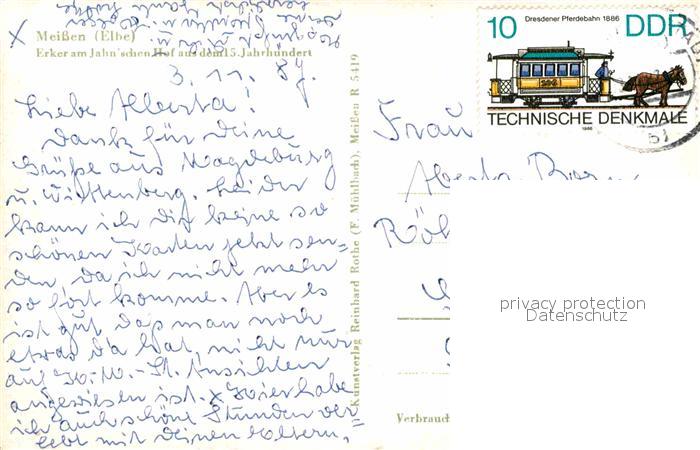 Meißen (Elbe)
Erker am Jahn'schen Hof aus dem 15. Jahrhundert
3. 11. 87.
Liebe Alberta!
Dank für Deine
Grüße aus Magdeburg
u. Wittenberg. Leider
kann ich Dir keine so
schönen Karten jetzt sen-
den, da ich nicht mehr
so fort komme. Aber es
ist gut daß man noch
etwas da hat, nicht nur
auf K.-M.-St. Ansichten
angewiesen ist. x Hier habe
ich auch schöne Stunden ver-
lebt mit Deinen Eltern,
Kunstverlag Reinhard Rothe (F. Mühlbach), Meißen R 5419
10 Dresdener Pferdebahn 1886 DDR
TECHNISCHE DENKMALE
1986
Frau
Röh
Verbrauc
privacy protection
Datenschutz